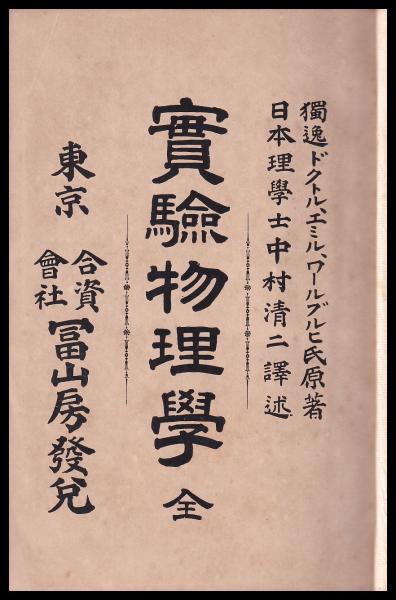 獨逸ドクトル、エミル、ワールブルヒ氏原著
日本理學士中村清二譯述
實驗物理學 全
東京 合資會社 冨山房發兌